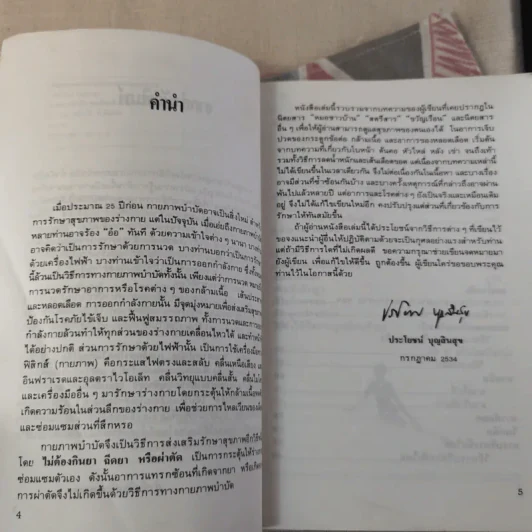 คำนำ
เมื่อประมาณ 25 ปีก่อน กายภาพบำบัดอาจเป็นสิ่งใหม่ สำหรับ
การรักษาสุขภาพของร่างกาย แต่ในปัจจุบัน เมื่อเอ่ยถึงกายภาพบำบัด
หลายท่านอาจร้อง "อ้อ" ทันที ด้วยความเข้าใจต่าง ๆ นานา บางท่าน
อาจคิดว่าเป็นการรักษาด้วยการนวด บางท่านบอกว่าเป็นการรักษา
ด้วยเครื่องไฟฟ้า บางท่านเข้าใจว่าเป็นการออกกำลังกาย ซึ่งทั้งหมด
นี้ล้วนเป็นวิธีการทางกายภาพบำบัดทั้งนั้น เพียงแต่ว่าการนวด
การนวดรักษาอาการหรือโรคต่าง ๆ ของกล้ามเนื้อ เส้นประสาท
และหลอดเลือด การออกกำลังกายนั้น มีจุดมุ่งหมายเพื่อส่งเสริมสุขภาพ
ป้องกันโรคภัยไข้เจ็บ และฟื้นฟูสมรรถภาพ ทั้งการนวดและการออก
กำลังกายล้วนทำให้ทุกส่วนของร่างกายเคลื่อนไหวได้ และทำหน้าที่
ได้อย่างปกติ ส่วนการรักษาด้วยไฟฟ้านั้น เป็นการใช้เครื่องมือทาง
ฟิสิกส์ (กายภาพ) คือกระแสไฟตรงและสลับ คลื่นเหนือเสียง
อินฟราเรดและอุลตราไวโอเล็ท คลื่นวิทยุแบบคลื่นสั้น
และเครื่องมืออื่น ๆ มารักษาร่างกายโดยกระตุ้นให้กล้ามเนื้อหดตัว
เกิดความร้อนในส่วนลึกของร่างกาย เพื่อช่วยการไหลเวียนของเลือด
และซ่อมแซมส่วนที่สึกหรอ
กายภาพบำบัดจึงเป็นวิธีการส่งเสริมรักษาสุขภาพอีกวิธีหนึ่ง
โดย ไม่ต้องกินยา ฉีดยา หรือผ่าตัด เป็นการกระตุ้นให้ร่างกาย
ซ่อมแซมตัวเอง ดังนั้นอาการแทรกซ้อนที่เกิดจากยา หรือเกิดจาก
การผ่าตัดจึงไม่เกิดขึ้นด้วยวิธีการทางกายภาพบำบัด
4
หนังสือเล่มนี้รวบรวมจากบทความของผู้เขียนที่เคยปรากฏใน
นิตยสาร "หมอชาวบ้าน" "สตรีสาร" "ขวัญเรือน" และนิตยสาร
อื่น ๆ เพื่อให้ผู้อ่านสามารถดูแลสุขภาพของตนเองได้ ในอาการเจ็บ
ปวดของกระดูกข้อต่อ กล้ามเนื้อ และอาการของหลอดเลือด เริ่มต้น
จากบทความที่เกี่ยวกับใบหน้า ต้นคอ หัวไหล่ หลัง เข่า จนถึงเท้า
รวมทั้งวิธีการลดน้ำหนักและเส้นเลือดขอด แต่เนื่องจากบทความเหล่านี้
ไม่ได้เขียนขึ้นในเวลาเดียวกัน จึงไม่ต่อเนื่องกันในเนื้อหา และบางเรื่อง
อาจมีส่วนที่ซ้ำซ้อนกันบ้าง และบางครั้งเหตุการณ์ที่กล่าวถึงอาจผ่าน
พ้นไปแล้วหลายปี แต่อาการและโรคต่าง ๆ ยังเป็นจริงและเหมือนเดิม
อยู่ จึงไม่ได้แก้ไขเขียนใหม่อีก คงปรับปรุงแต่ส่วนที่เกี่ยวข้องกับการ
รักษาให้ทันสมัยขึ้น
ถ้าผู้อ่านหนังสือเล่มนี้ได้ประโยชน์จากวิธีการต่าง ๆ ที่เขียนไว้
ขอจงแนะนำผู้อื่นให้ปฏิบัติตามด้วยจะเป็นกุศลอย่างแรงสำหรับท่าน
แต่ถ้ามีวิธีการใดที่ไม่เกิดผลดี ขอความกรุณาช่วยเขียนจดหมายมา
ยังผู้เขียน เพื่อแก้ไขให้ดีขึ้น ถูกต้องขึ้น ผู้เขียนใคร่ขอขอบพระคุณ
ท่านไว้ในโอกาสนี้ด้วย
ประโยชน์ บุญสินสุข
กรกฎาคม 2534
5